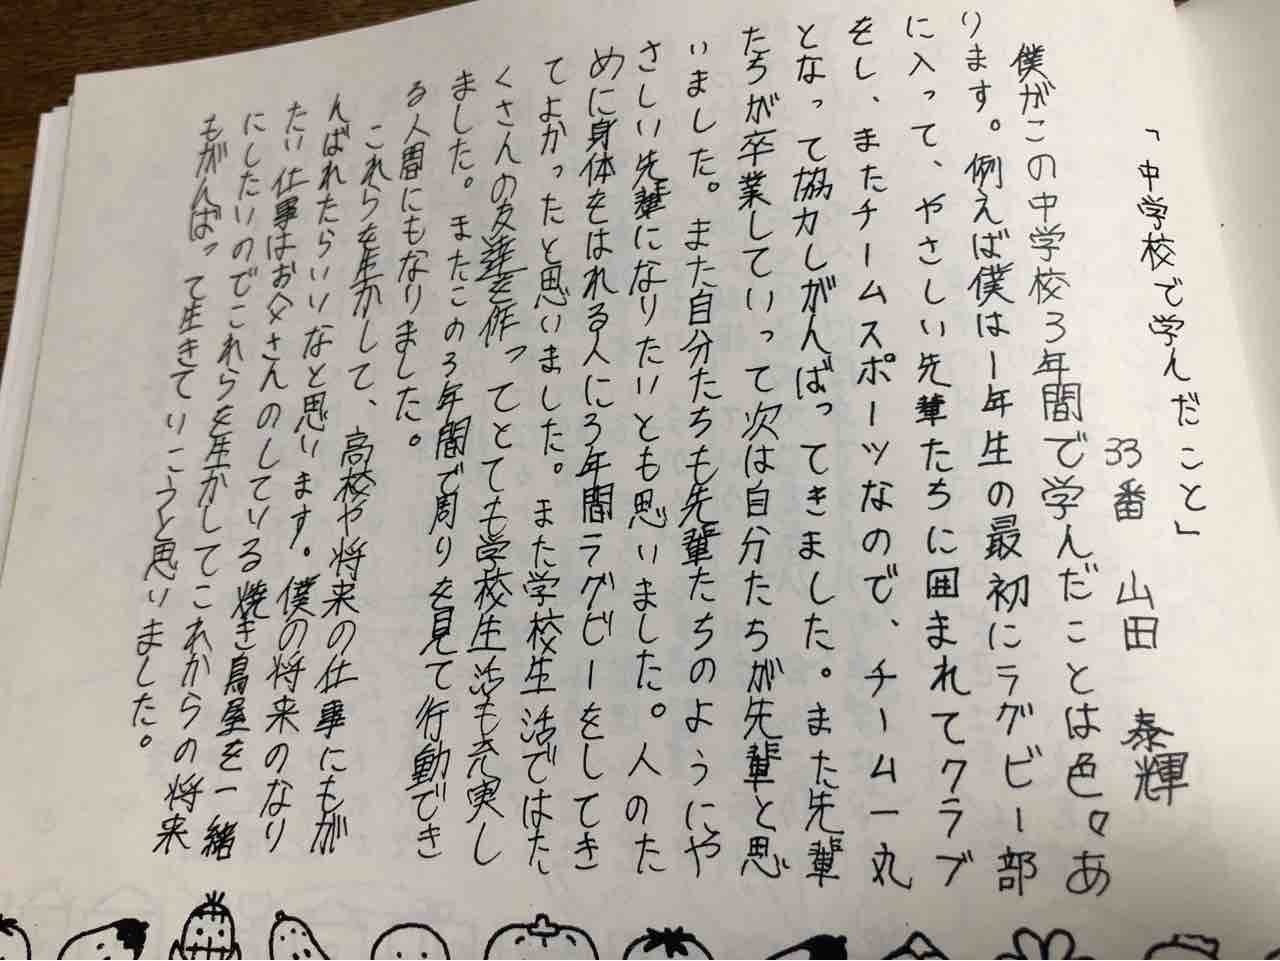 「中学校で学んだこと」
33番 山田 泰輝
僕がこの中学校3年間で学んだことは色々あ
ります。例えば僕は1年生の最初にラグビー部
に入って、やさしい先輩たちに囲まれてクラブ
をし、またチームスポーツなので、チーム一丸
となって協力しがんばってきました。また先輩
たちが卒業していって次は自分たちが先輩と思
いました。また自分たちも先輩たちのようにや
さしい先輩になりたいとも思いました。人のた
めに身体をはれる人に3年間ラグビーをしてき
てよかったと思いました。また学校生活ではた
くさんの友達を作ってとても学校生活も充実し
ました。またこの3年間で周りを見て行動でき
る人間にもなりました。
これらを生かして、高校や将来の仕事にもが
んばれたらいいなと思います。僕の将来のなり
たい仕事はお父さんのしている焼き鳥屋を一緒
にしたいのでこれらを生かしてこれからの将来
もがんばって生きていこうと思いました。